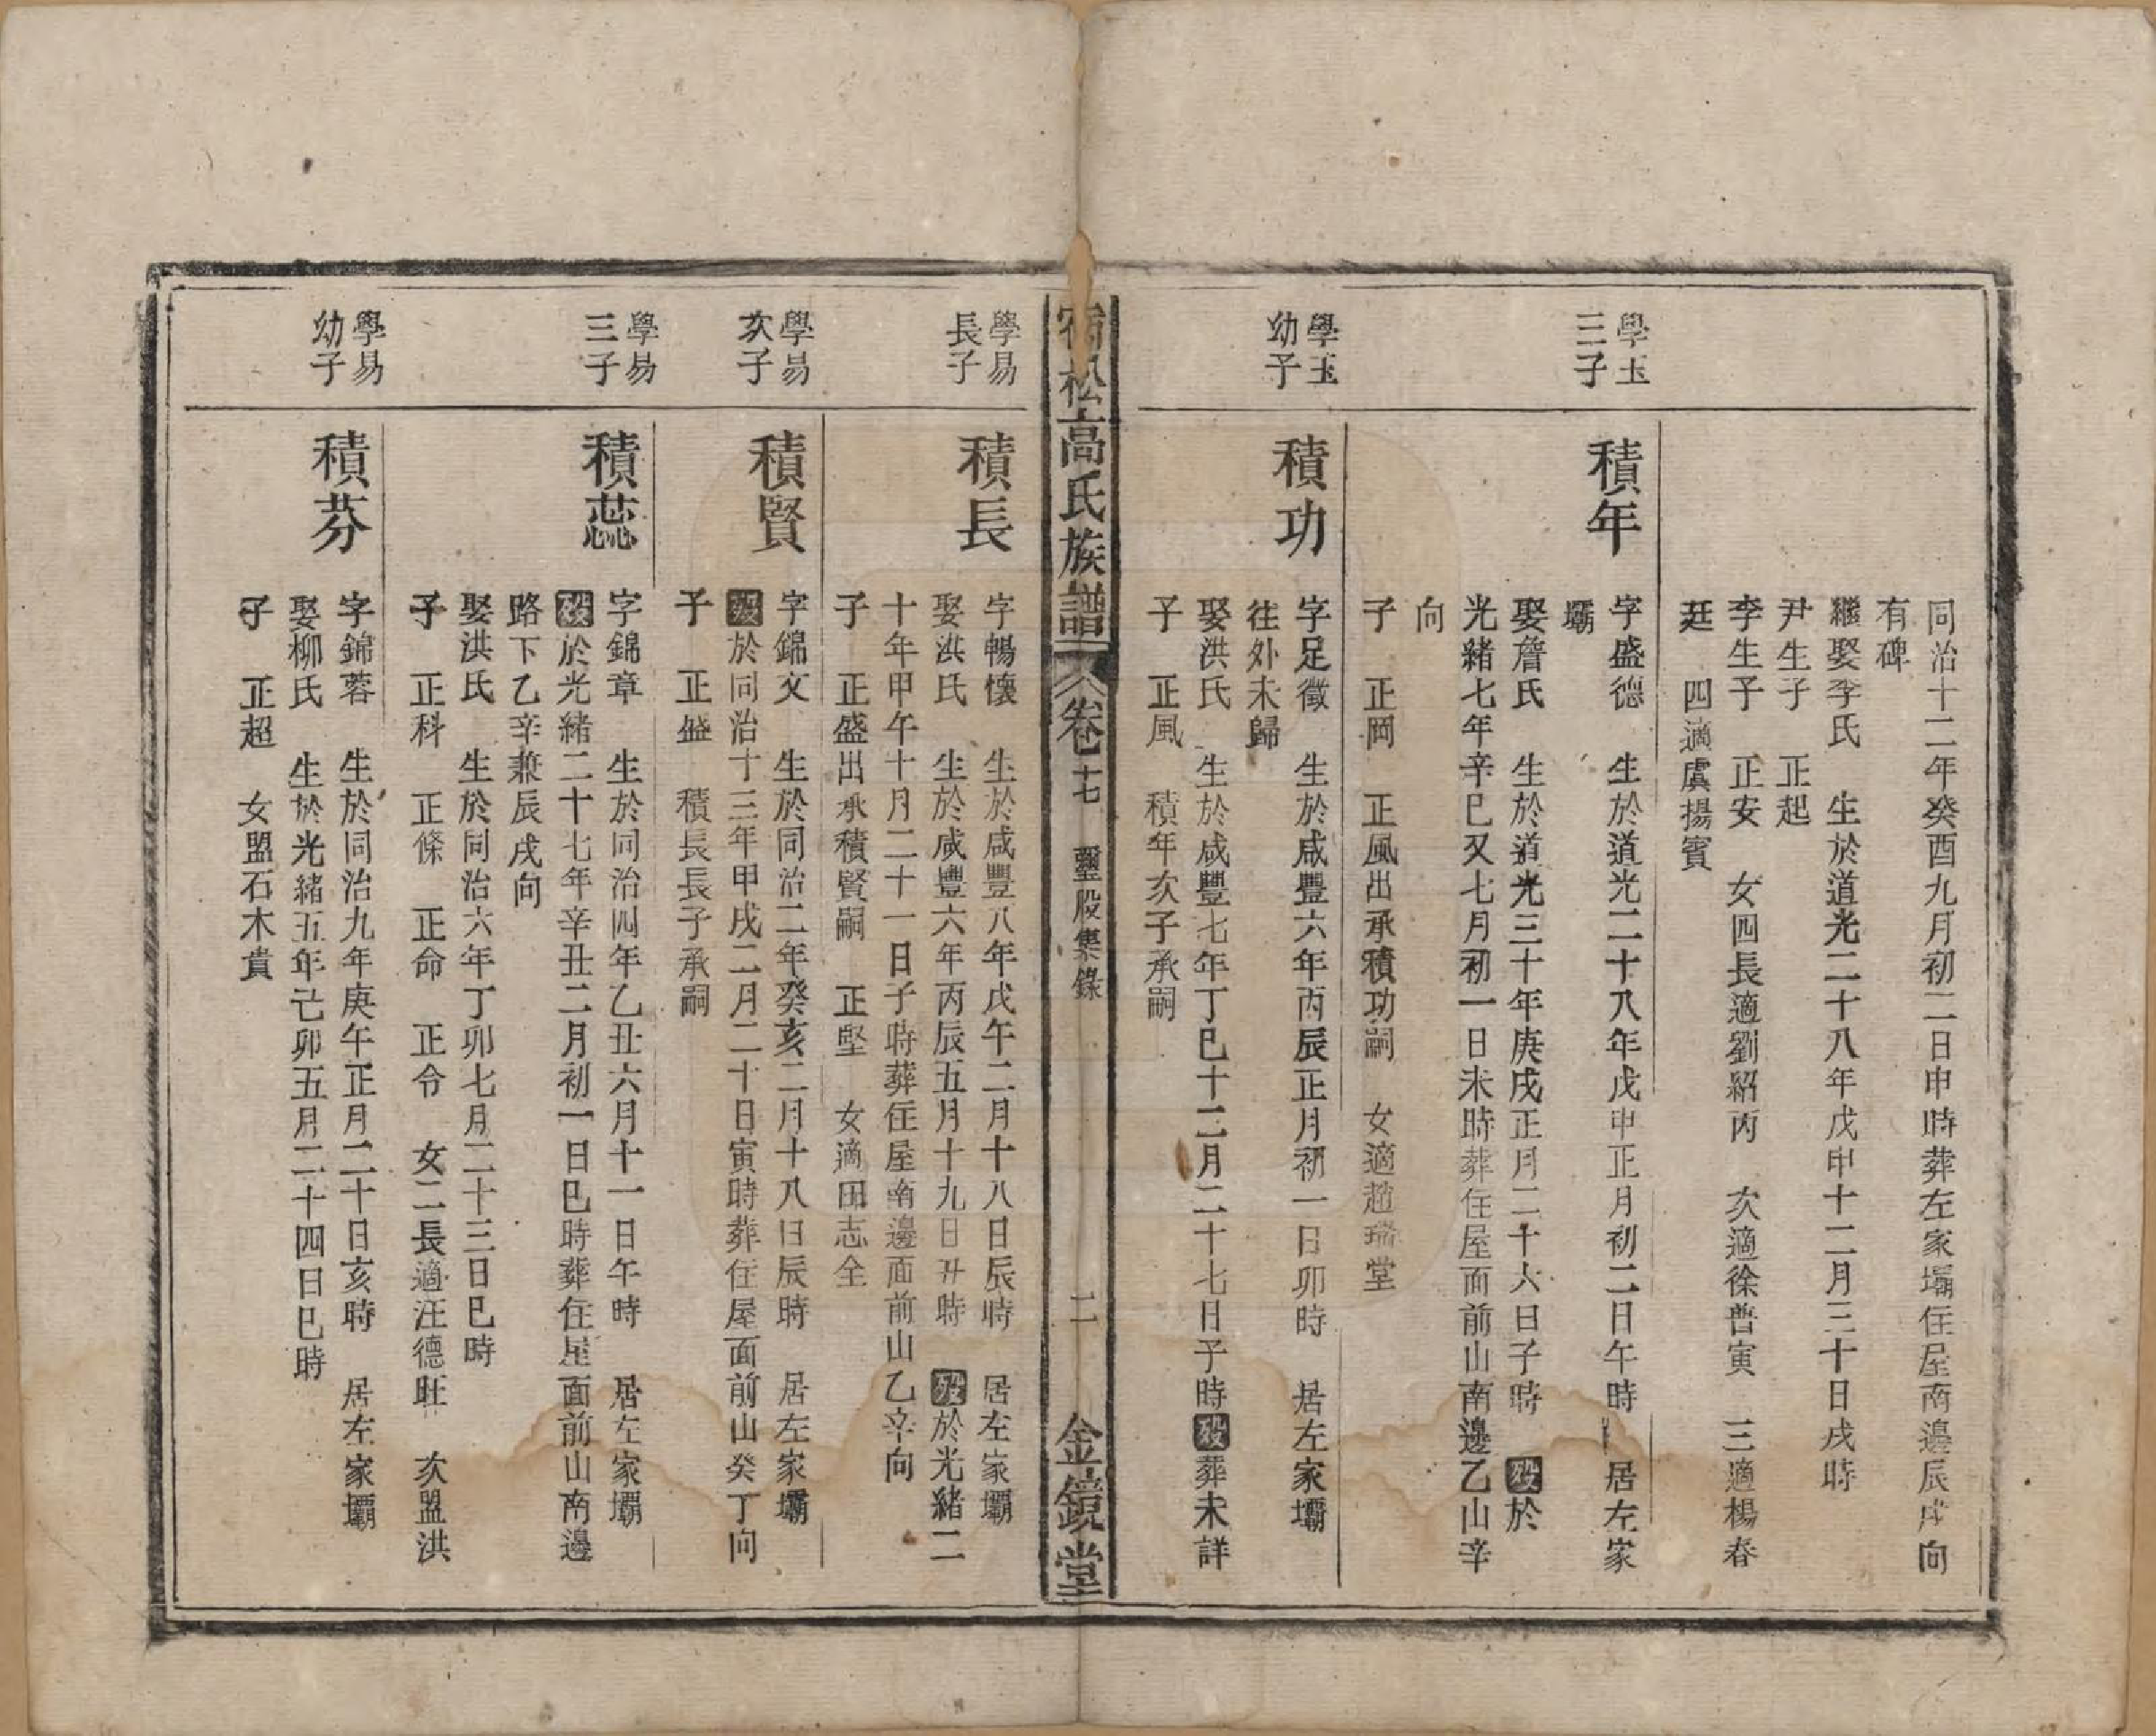 同治十二年癸酉九月初二日申時葬左家壩住屋南邊辰戌向
有碑
繼娶李氏　生於道光二十八年戊申十二月三十日戌時
尹生子　正起
李生子　正安　女四長適劉紹丙　次適徐晋寅　三適楊春
廷　四適虞揚賓
學玉
三子
積年
字盛德　生於道光二十八年戊申正月初二日午時　居左家
壩
娶詹氏　生於道光三十年庚戌正月二十六日子時　殁於
光緒七年辛巳又七月初一日未時葬住屋面前山南邊乙山辛
向
子　正岡　正風出承積功嗣　女適趙瑞堂
學玉
幼子
積功
字足徵　生於咸豐六年丙辰正月初一日卯時　居左家壩
往外未歸
娶洪氏　生於咸豐七年丁巳十二月二十七日子時殁葬未詳
子　正風　積年次子承嗣
宿松高氏族譜　卷七　璽股集錄　二　金鏡堂
學易
長子
積長
字暢懷　生於咸豐八年戊午二月十八日辰時　居左家壩
娶洪氏　生於咸豐六年丙辰五月十九日丑時　殁於光緒二
十年甲午十月二十一日子時葬住屋南邊面前山乙辛向
子　正盛出承積賢嗣　正堅　女適田志全
學易
次子
積賢
字錦文　生於同治二年癸亥二月十八日辰時　居左家壩
殁於同治十三年甲戌二月二十日寅時葬住屋面前山癸丁向
子　正盛　積長長子承嗣
學易
三子
積蕊
字錦章　生於同治四年乙丑六月十一日午時　居左家壩
殁於光緒二十七年辛丑二月初一日巳時葬住屋面前山南邊
路下乙辛兼辰戌向
娶洪氏　生於同治六年丁卯七月二十三日巳時
子　正科　正條　正命　正令　女二長適汪德旺　次盟洪
學易
幼子
積芬
字錦蓉　生於同治九年庚午正月二十日亥時　居左家壩
娶柳氏　生於光緒五年己卯五月二十四日巳時
子　正超　女盟石木貴